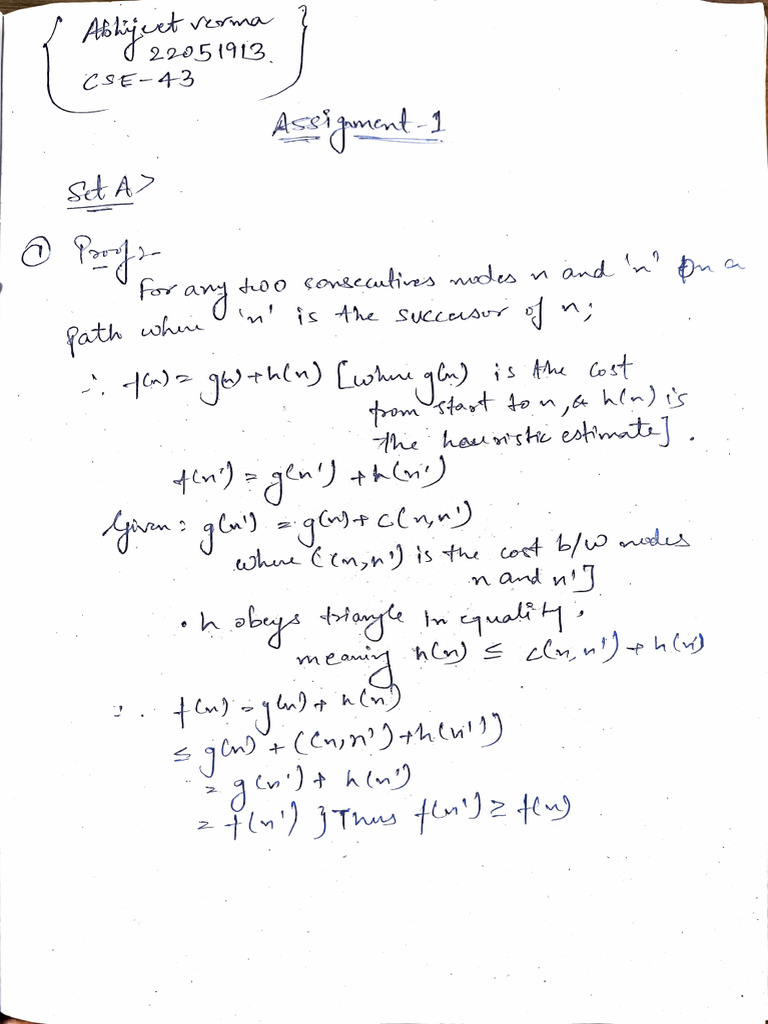 Abhijeet verma
22051913.
CSE-43
Assignment-1
Set A>
① Proof:-
For any two consecutives nodes n and 'n' on a
path where 'n' is the successor of n;
∴ f(n) = g(n) + h(n) [where g(n) is the cost
from start to n, & h(n) is
the heuristic estimate].
f(n') = g(n') + h(n')
Given: g(n') = g(n) + c(n,n')
where c(n,n') is the cost b/w nodes
n and n']
• h obeys triangle inequality,
meaning h(n) ≤ c(n,n') + h(n')
∴ f(n) = g(n) + h(n)
≤ g(n) + c(n,n') + h(n')
= g(n') + h(n')
= f(n') } Thus f(n') ≥ f(n)